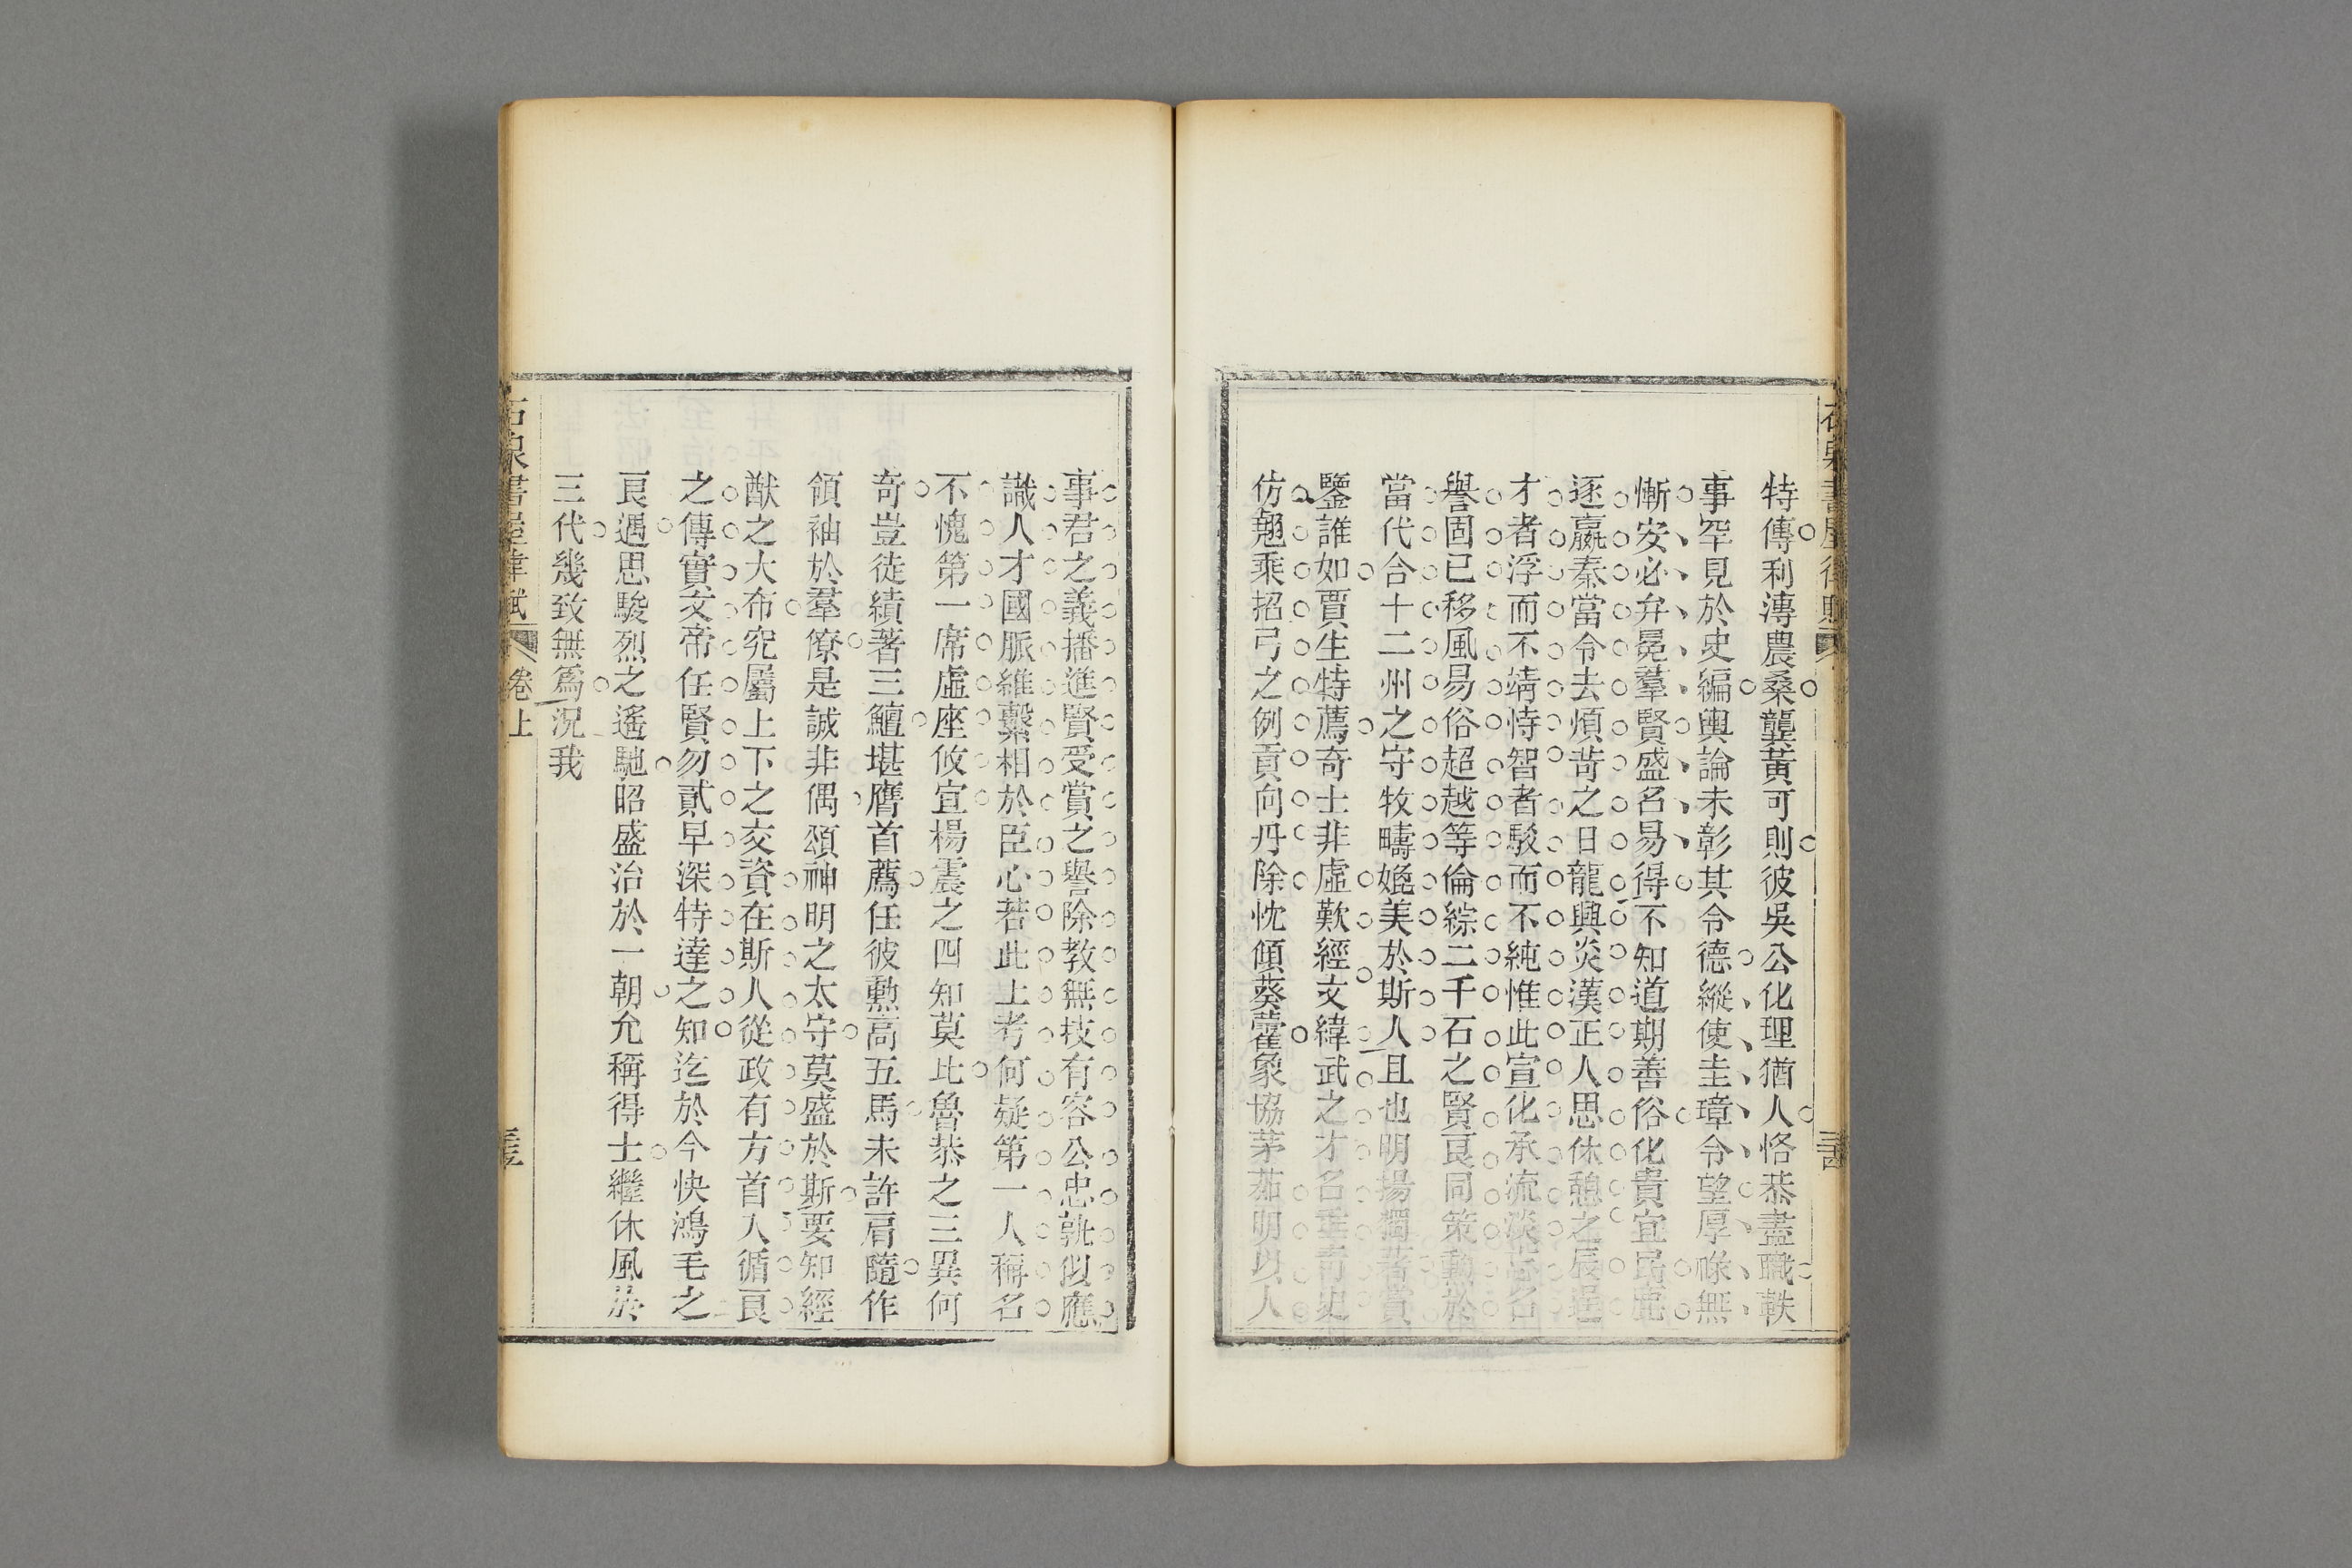 特傳利溥農桑龔黃可則彼吳公化理猶人恪恭盡職軼
事罕見於史編輿論未彰其令德縱使圭璋令望厚祿無
慚安必弁冕羣賢盛名易得不知道期善俗化貴宜民鹿
逐嬴秦當令去煩苛之日龍興炎漢正人思休憩之辰逞
才者浮而不靖恃智者駁而不純惟此宣化承流淡榮名
譽固已移風易俗超越等倫綜二千石之賢良同策勳於
當代合十二州之守牧疇媲美於斯人且也明揚獨著賞
鑒誰如賈生特薦奇士非虛歎經文緯武之才名垂靑史
仿翹乘招弓之例貢向丹除忱傾葵藿象協茅茹明以人
事君之義播進賢受賞之譽除教無技有容公忠孰似應
識人才國脈維繫相於臣心若此上考何疑第一人稱名
不愧第一席虛座攸宜楊震之四知莫比魯恭之三異何
奇豈徒績著三鱣堪膺首薦任彼勲高五馬未許肩隨作
領袖於羣僚是誠非偶頌神明之太守莫盛於斯要知經
猷之大布究屬上下之交資在斯人從政有方首人循良
之傳實文帝任賢勿貳早深特達之知迄於今快鴻毛之
良遇思駿烈之遙馳昭盛治於一朝允稱得士繼休風於
三代幾致無爲況我
卷上